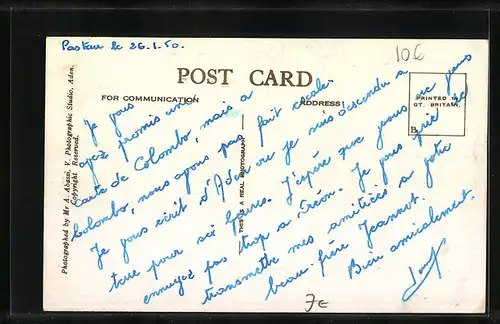 Pastau le 26.1.50.
10€
POST CARD
FOR COMMUNICATION
ADDRESS
PRINTED IN
GT. BRITAIN.
B
Photographed by Mr A. Abassi, V. Photographic Studio, Aden.
Copyright Reserved.
THIS IS A REAL PHOTOGRAPH
Je vous
avais promis une
carte de Colombo, mais a
Colombo, nous avons pas fait escale.
Je vous écrit d'Aden ou je suis descendu a
terre pour six heures. J'espère que vous ne vous
ennuyez pas trop a Créon. Je vous prie de
transmettre mes amitiées a votre
beau-frère Jeannot.
Bien amicalement.
7€